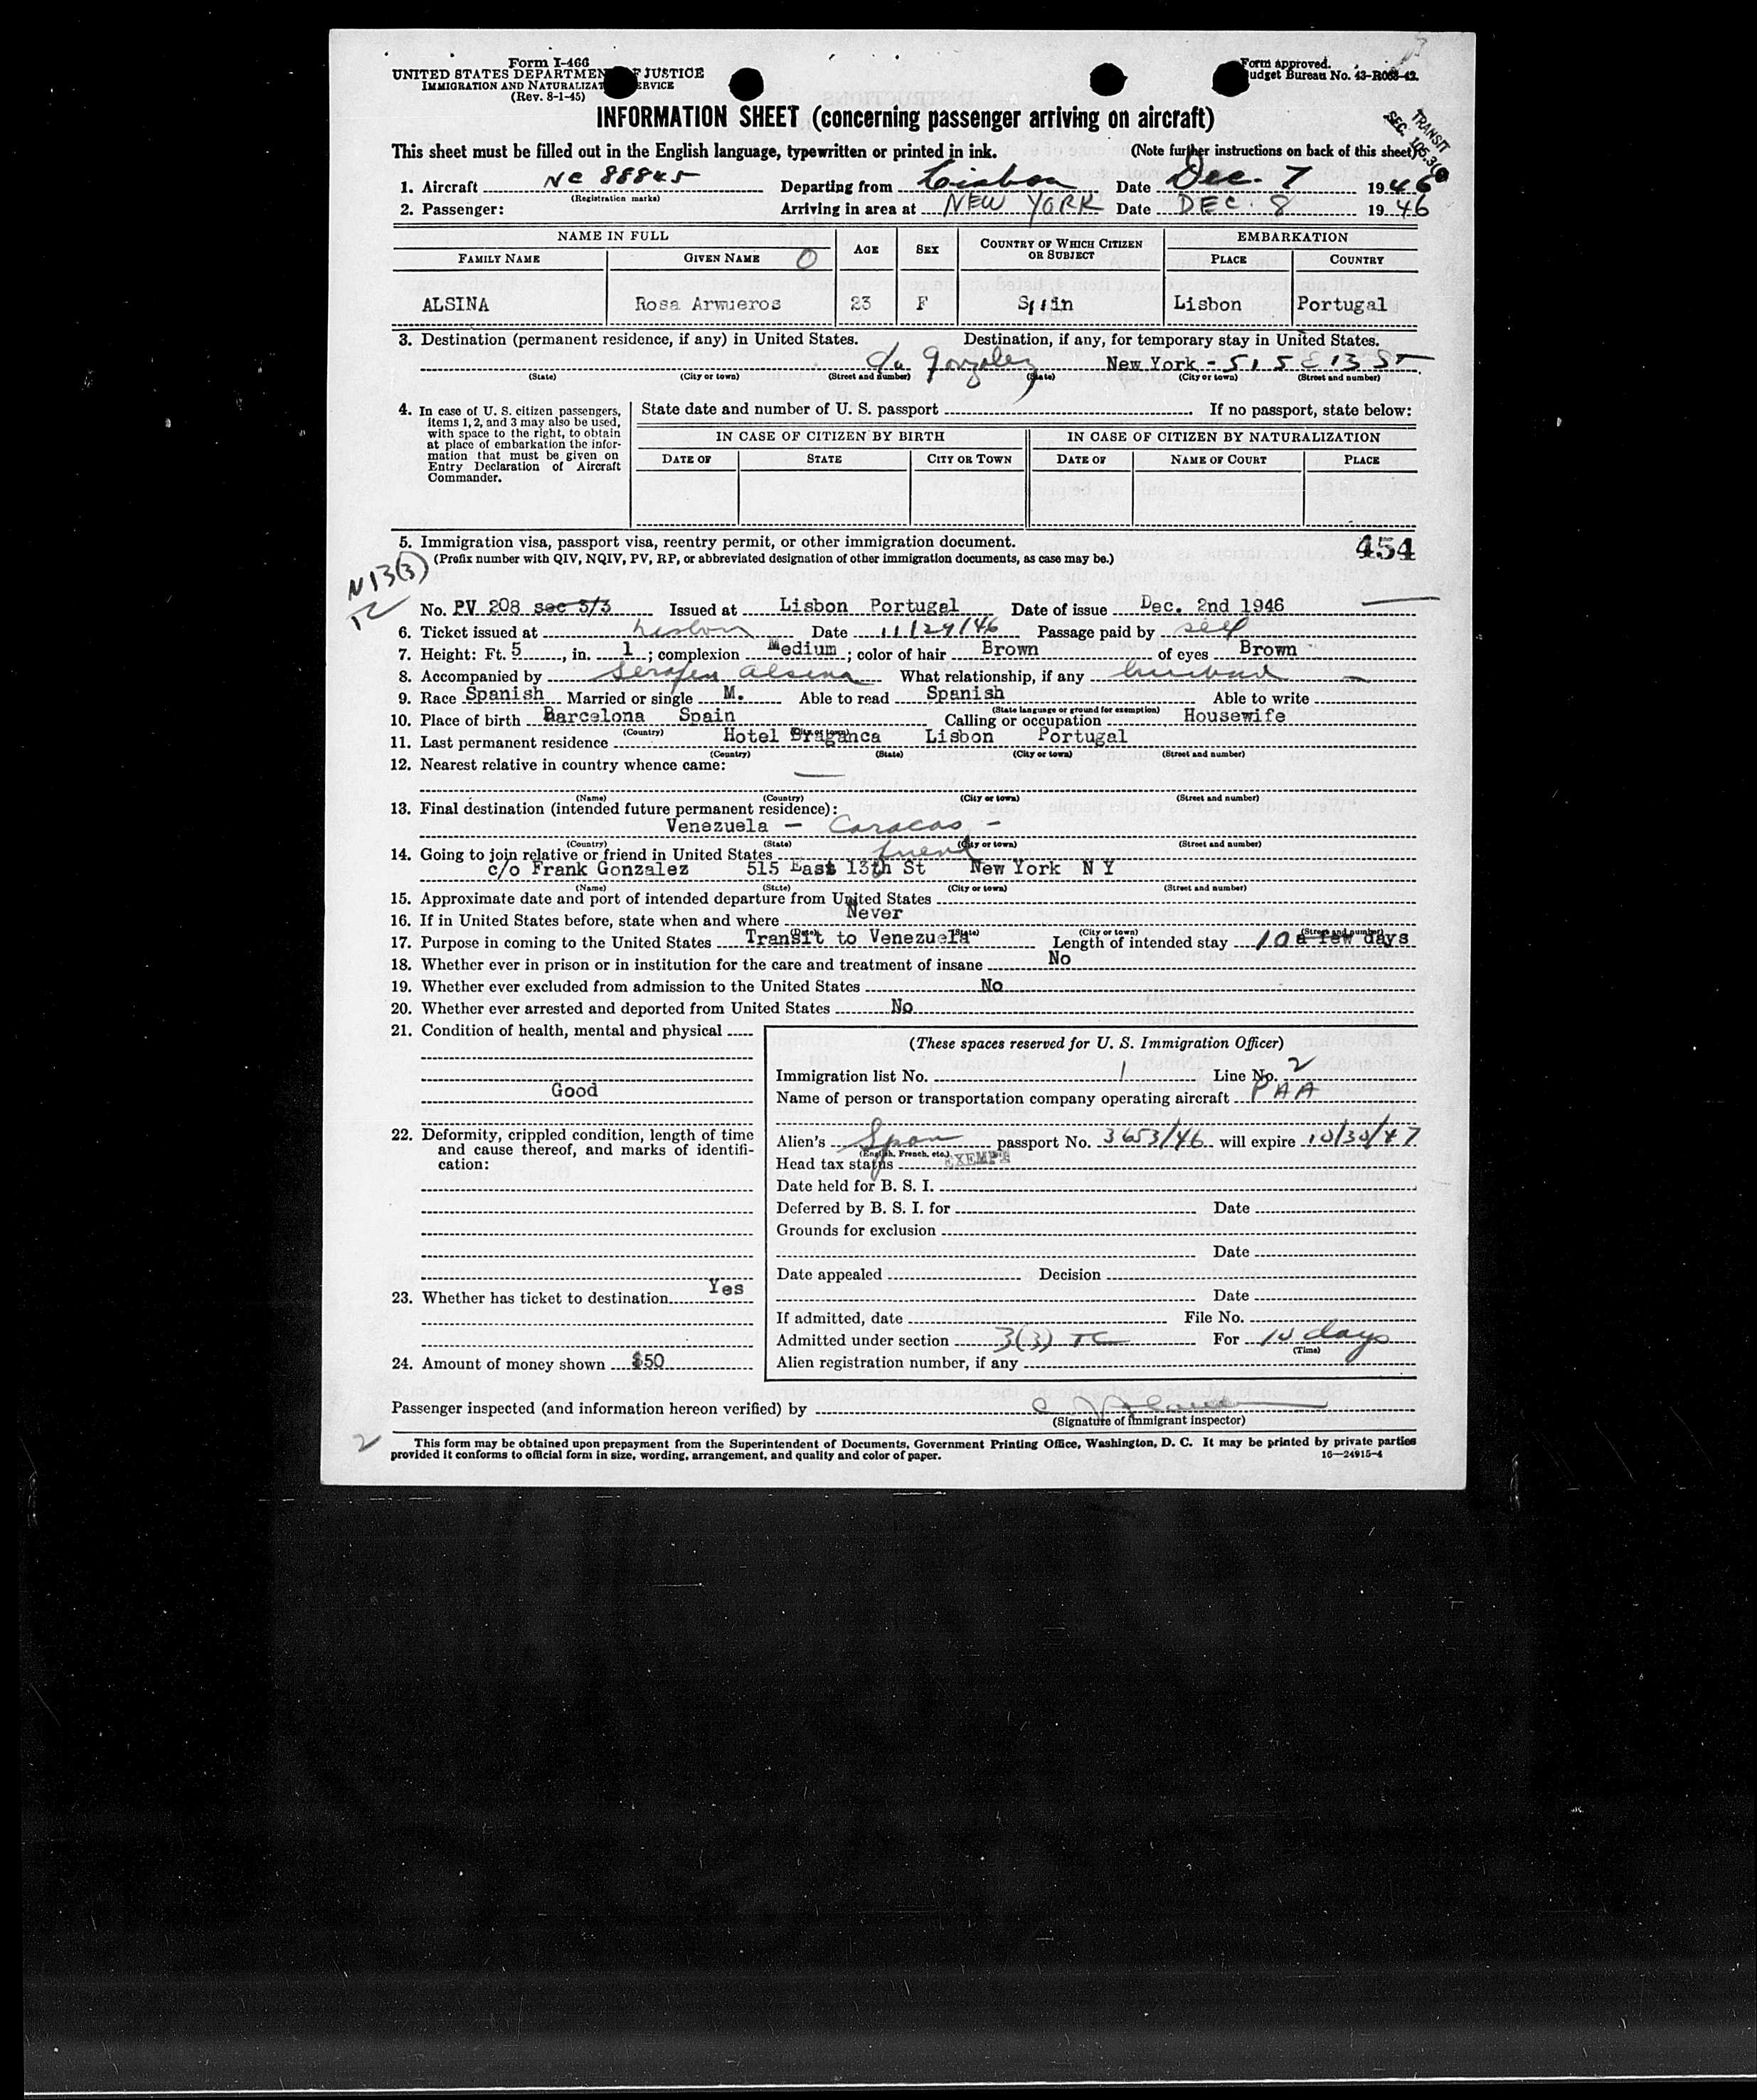 Form I-466
UNITED STATES DEPARTMENT OF JUSTICE
IMMIGRATION AND NATURALIZATION SERVICE
(Rev. 8-1-45)
Form approved.
Budget Bureau No. 43-R083-42.
TRANSIT
SEC.
INFORMATION SHEET (concerning passenger arriving on aircraft)
This sheet must be filled out in the English language, typewritten or printed in ink. (Note further instructions on back of this sheet)
1. Aircraft NC 88845 Departing from Lisbon Date Dec. 7 1946
(Registration marks)
2. Passenger: Arriving in area at NEW YORK Date DEC. 8 1946
NAME IN FULL AGE SEX COUNTRY OF WHICH CITIZEN OR SUBJECT EMBARKATION
FAMILY NAME GIVEN NAME O PLACE COUNTRY
ALSINA Rosa Armueros 23 F Spain Lisbon Portugal
3. Destination (permanent residence, if any) in United States. Destination, if any, for temporary stay in United States.
c/o Gonzalez New York - 515 E 13 ST
(State) (City or town) (Street and number) (State) (City or town) (Street and number)
4. In case of U. S. citizen passengers, items 1, 2, and 3 may also be used, with space to the right, to obtain at place of embarkation the information that must be given on Entry Declaration of Aircraft Commander.
State date and number of U. S. passport If no passport, state below:
IN CASE OF CITIZEN BY BIRTH IN CASE OF CITIZEN BY NATURALIZATION
DATE OF STATE CITY OR TOWN DATE OF NAME OF COURT PLACE
5. Immigration visa, passport visa, reentry permit, or other immigration document. 454
(Prefix number with QIV, NQIV, PV, RP, or abbreviated designation of other immigration documents, as case may be.)
N13(3)
No. PV 208 sec 3/3 Issued at Lisbon Portugal Date of issue Dec. 2nd 1946
6. Ticket issued at Lisbon Date 11/29/46 Passage paid by self
7. Height: Ft. 5, in. 1; complexion Medium; color of hair Brown of eyes Brown
8. Accompanied by Serafin Alsina What relationship, if any husband
9. Race Spanish Married or single M. Able to read Spanish Able to write
(State language or ground for exemption)
10. Place of birth Barcelona Spain Calling or occupation Housewife
(Country) (City or town)
11. Last permanent residence Hotel Braganca Lisbon Portugal
(Country) (State) (City or town) (Street and number)
12. Nearest relative in country whence came:
(Name) (Country) (City or town) (Street and number)
13. Final destination (intended future permanent residence):
Venezuela - Caracas -
(Country) (State) (City or town) (Street and number)
14. Going to join relative or friend in United States friend
c/o Frank Gonzalez 515 East 13th St New York N Y
(Name) (State) (City or town) (Street and number)
15. Approximate date and port of intended departure from United States
16. If in United States before, state when and where Never
(Date) (State) (City or town) (Street and number)
17. Purpose in coming to the United States Transit to Venezuela Length of intended stay 10 a few days
18. Whether ever in prison or in institution for the care and treatment of insane No
19. Whether ever excluded from admission to the United States No
20. Whether ever arrested and deported from United States No
21. Condition of health, mental and physical
Good
22. Deformity, crippled condition, length of time and cause thereof, and marks of identification:
23. Whether has ticket to destination Yes
24. Amount of money shown $50
(These spaces reserved for U. S. Immigration Officer)
Immigration list No. 1 Line No. 2
Name of person or transportation company operating aircraft PAA
Alien's Span passport No. 3653/46 will expire 10/30/47
(English, French, etc.)
Head tax status EXEMPT
Date held for B. S. I.
Deferred by B. S. I. for Date
Grounds for exclusion
Date
Date appealed Decision
Date
If admitted, date File No.
Admitted under section 3(3) TC For 10 days
(Time)
Alien registration number, if any
Passenger inspected (and information hereon verified) by
(Signature of immigrant inspector)
2
This form may be obtained upon prepayment from the Superintendent of Documents, Government Printing Office, Washington, D. C. It may be printed by private parties
provided it conforms to official form in size, wording, arrangement, and quality and color of paper. 16—24915-4